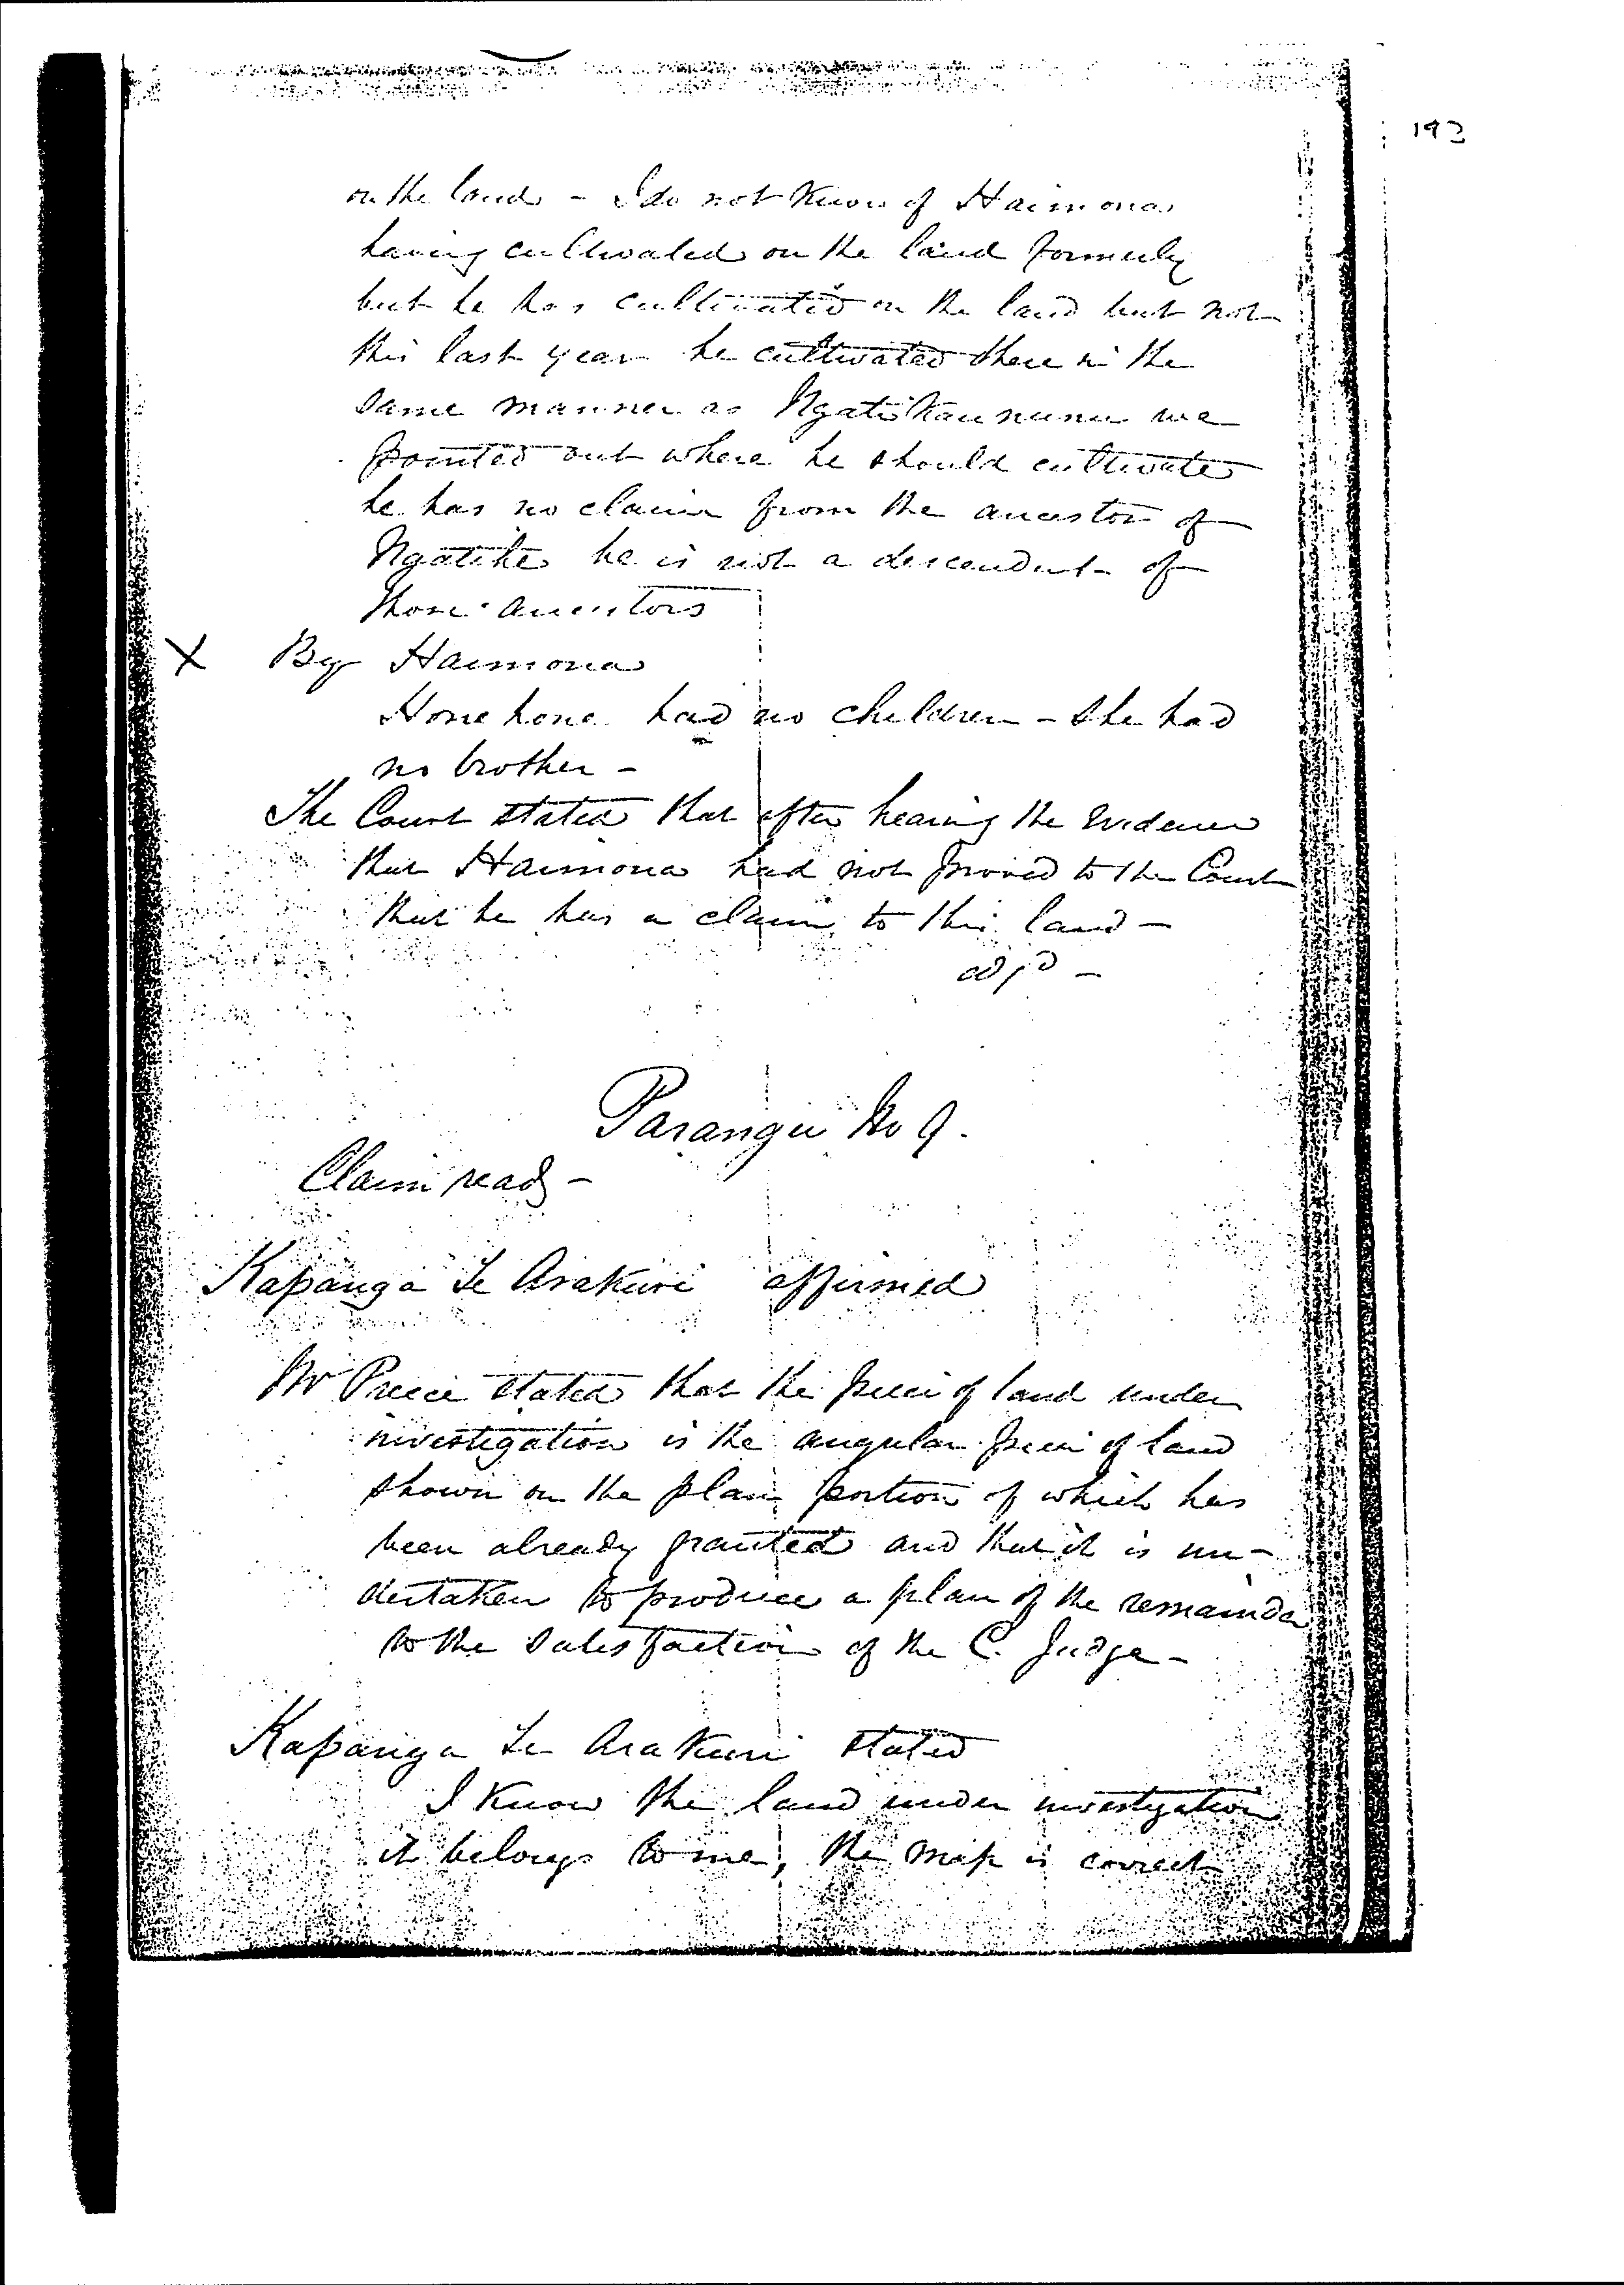 193
on the land - I do not know of Haimona
having cultivated on the land formerly
but he has cultivated on the land but not
this last year he cultivated there in the
same manner as Ngatikaununu we
pointed out where he should cultivate
he has no claim from the ancestor of
Ngatihe he is not a descendant of
those ancestors
X By Haimona
Honehone had no children - she had
no brother -
The Court stated that after hearing the evidence
that Haimona had not proved to the Court
that he has a claim to this land -
adjd -
Parangii No 9.
Claim read -
Kapanga Te Arakuri affirmed
Mr Preece stated that the piece of land under
investigation is the angular piece of land
shown on the plan portion of which has
been already granted and that it is un-
dertaken to produce a plan of the remainder
to the satisfaction of the C. Judge -
Kapanga Te Arakuri stated
I know the land under investigation
it belongs to me, the map is correct